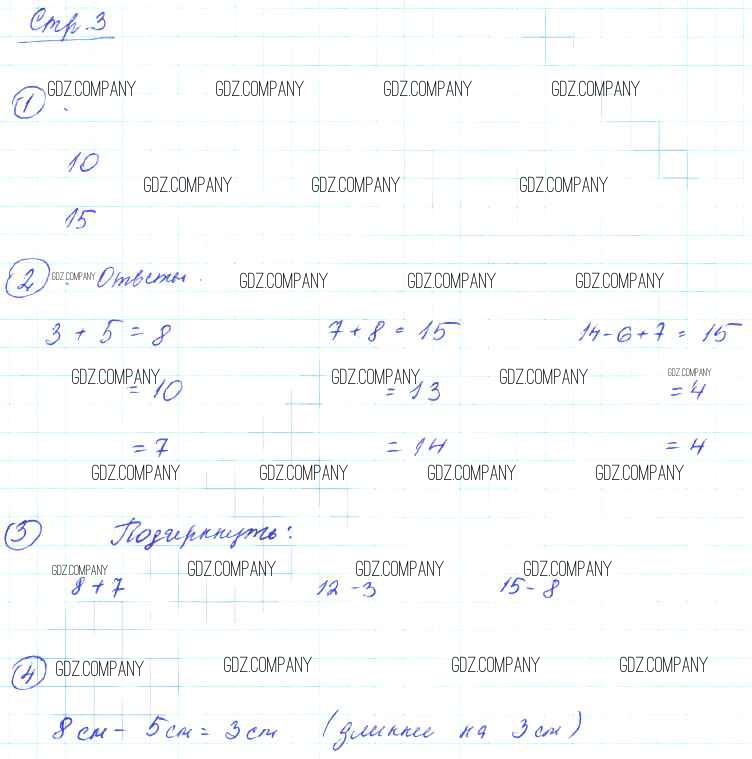 Стр. 3
GDZ.COMPANY GDZ.COMPANY GDZ.COMPANY GDZ.COMPANY
1
10
GDZ.COMPANY GDZ.COMPANY GDZ.COMPANY
15
2 GDZ.COMPANY Ответы. GDZ.COMPANY GDZ.COMPANY GDZ.COMPANY
3 + 5 = 8 7 + 8 = 15 14 - 6 + 7 = 15
GDZ.COMPANY GDZ.COMPANY GDZ.COMPANY GDZ.COMPANY
= 10 = 13 = 4
= 7 = 14 = 4
GDZ.COMPANY GDZ.COMPANY GDZ.COMPANY GDZ.COMPANY
3 Подчеркнуть:
GDZ.COMPANY GDZ.COMPANY GDZ.COMPANY GDZ.COMPANY
8 + 7 12 - 3 15 - 8
4 GDZ.COMPANY GDZ.COMPANY GDZ.COMPANY GDZ.COMPANY
8 см - 5 см = 3 см (длиннее на 3 см)